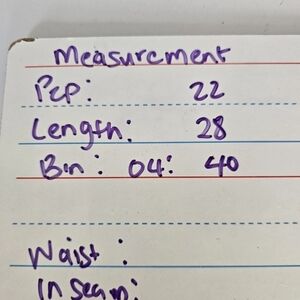 Measurement
Pep: 22
Length: 28
Bin: 04: 40
Waist:
Inseam: